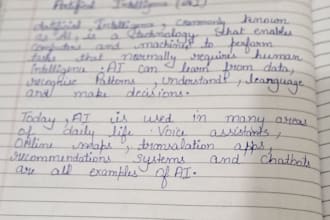 Artificial Intelligence (AI)
Artificial Intelligence, commonly known
as AI, is a technology that enables
computers and machines to perform
tasks that normally requires human
intelligence. AI can learn from data,
recognise Patterns, understand, leanguage
and make decisions.
Today, AI is used in many areas
of daily life. Voice assistants,
Online maps, translation apps,
recommendations systems and chatbots
are all examples of AI.